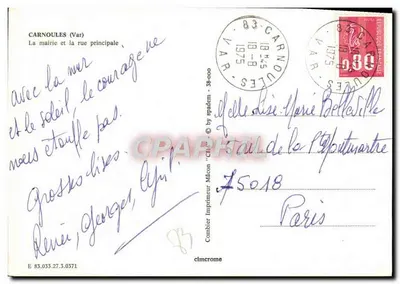 CARNOULES (Var)
La mairie et la rue principale
avec la mer
et le soleil le courage ne
nous étouffe pas.
Grosses bises.
Renée, Georges,
83 - CARNOULES
- VAR -
18 - 8
1975
83 - CARNOULES
- VAR -
18 - 8
1975
0,80
CPARAMA
Melle Lise-Marie
de la
75018
Paris
83
Combier Imprimeur Mâcon "CIM" © by spadem - 38-000
cimcrome
E 83.033.27.3.0371